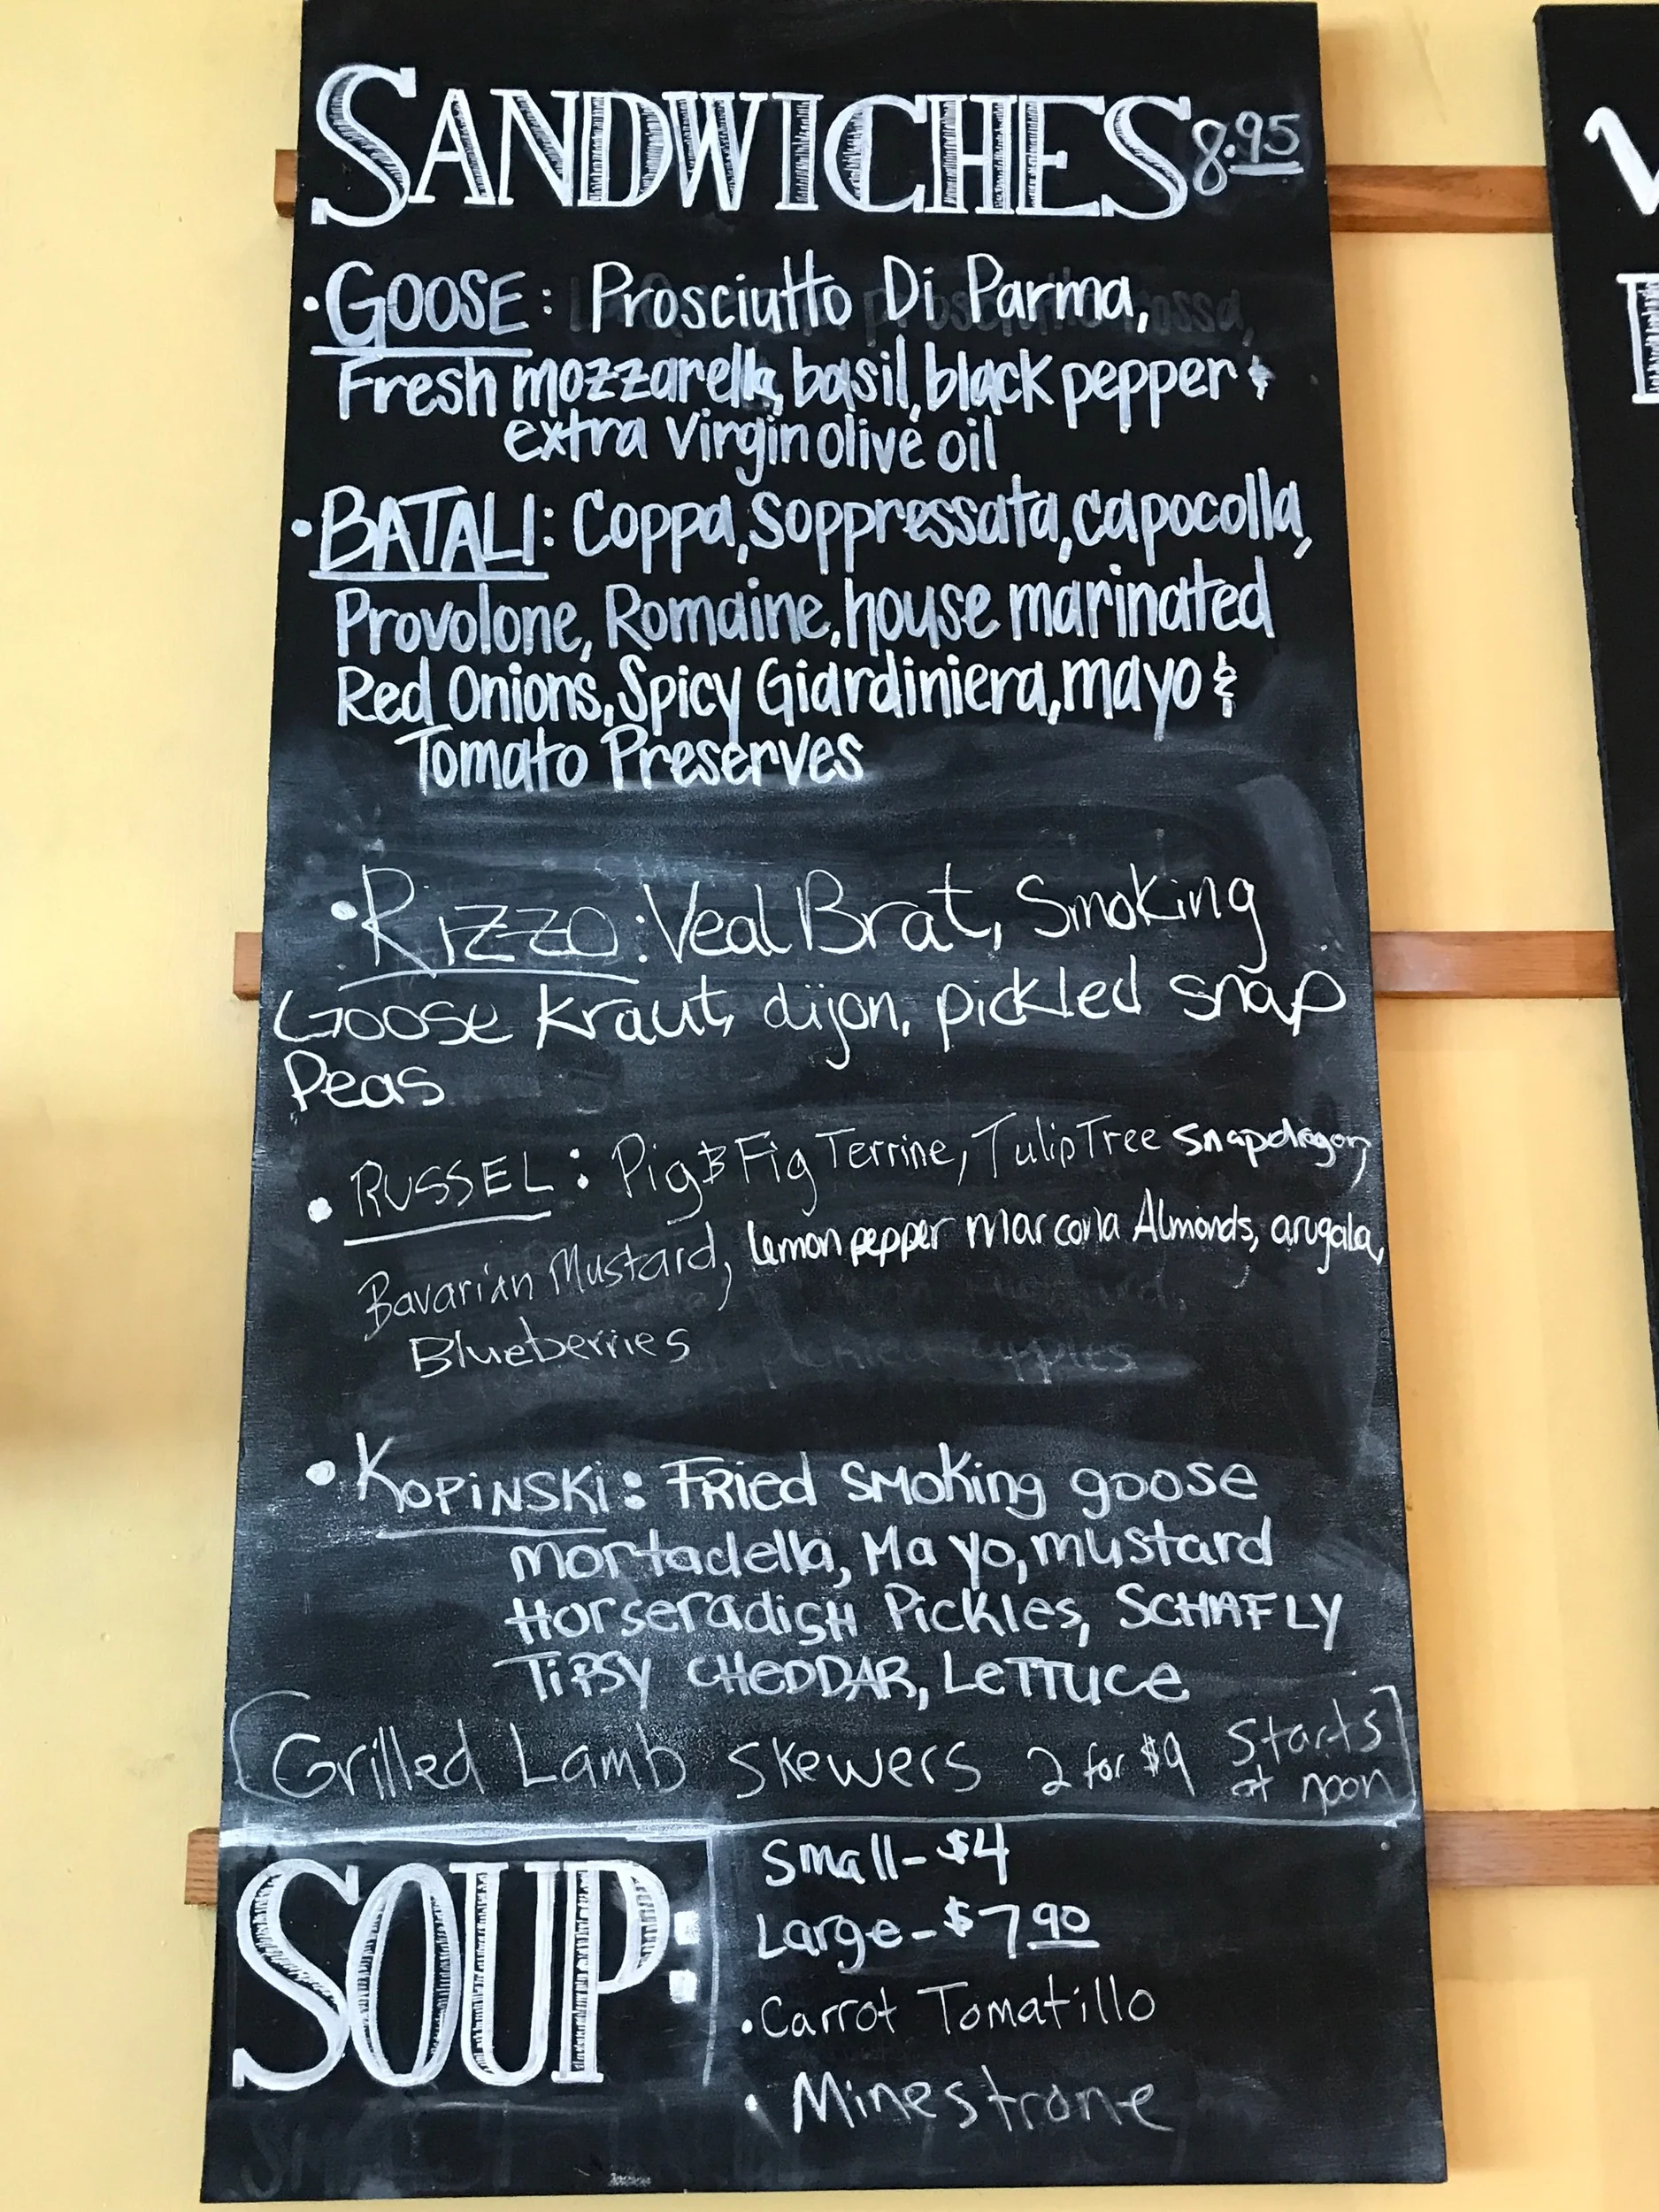 SANDWICHES 8.95
• GOOSE: Prosciutto Di Parma,
Fresh mozzarella, basil, black pepper &
extra virgin olive oil
• BATALI: Coppa, Soppressata, capocolla,
Provolone, Romaine, house marinated
Red Onions, Spicy Giardiniera, mayo &
Tomato Preserves
• RIZZO: Veal Brat, Smoking
Goose kraut, dijon, pickled snap
Peas
• RUSSEL: Pig & Fig Terrine, TulipTree Snapdragon,
Bavarian Mustard, lemon pepper marcona Almonds, arugala,
Blueberries
• KOPiNSKi: FRied SMoking goose
mortadella, Mayo, mustard
HorseradisH Pickles, SCHAFLY
TiPSY CHeDDAR, LeTTuce
[Grilled Lamb Skewers 2 for $9 Starts
at noon]
SOUP:
Small - $4
Large - $7.90
• Carrot Tomatillo
• Minestrone